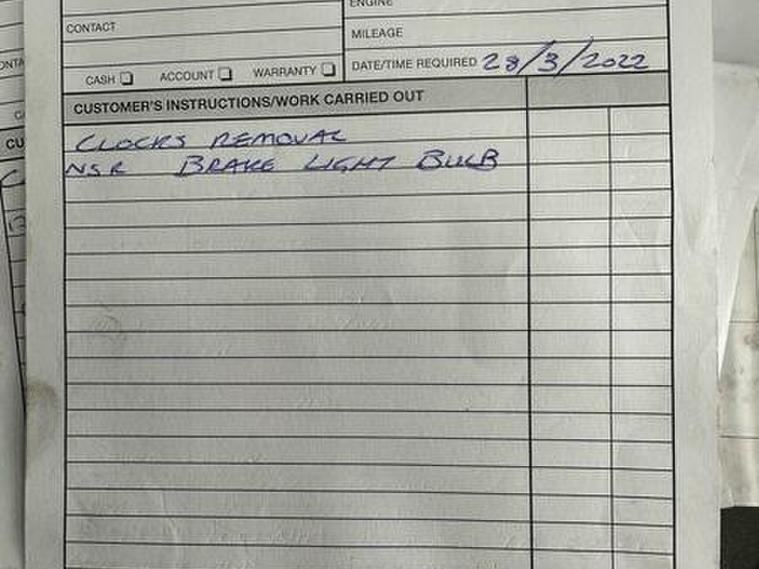 ENGINE
CONTACT
MILEAGE
CASH ACCOUNT WARRANTY
DATE/TIME REQUIRED 28/3/2022
CUSTOMER'S INSTRUCTIONS/WORK CARRIED OUT
CLOCKS REMOVAL
NSR BRAKE LIGHT BULB